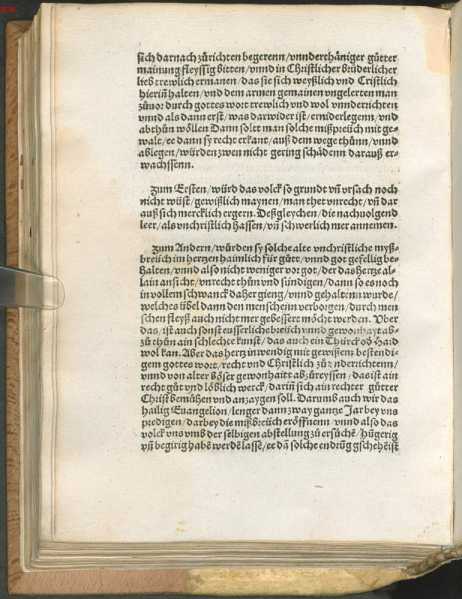 sich darnach zůrichten begeren/vnnderthäniger gůtter
mainung fleyssig bitten/vnnd in Christlicher brüderlicher
lieb trewlich ermanen/das sie sich weyßlich vnd Cristlich
hieriñ halten/vnd dem armen gemainen vngelerten man
zůuor durch gottes wort trewlich vnd wol vnnderrichten
vnnd als dann erst/was darwider ist/erniderlegenn/vnd
abthůn wöllen Dann solt man solche mißpreüch mit ge-
walt/ee dann sy recht erkant/auß dem wege thůnn/vnnd
ablegen/würden zwen nicht gering schädenn darauß er-
wachssenn.
Zum Ersten/würd das volck so grundt vñ vrsach noch
nicht wüst/gewißlich maynen/man thet vnrecht/vñ dar
auß sich mercklich ergern. Deßgleychen/die nachuolgend
leer/als vnchristlich hassen/vñ schwerlich mer annemen.
Zum Andern/würden sy solche alte vnchristliche myß-
breüch im hertzen haimlich für gůtt/vnnd got gefellig be-
halten/vnnd also nicht weniger vor got/der das hertze al-
lain ansicht/vnrecht thůn vnd sündigen/dann so es noch
in vollem schwanck daher gieng/vnnd gehaltenn wurde/
welches übel dann den menschenn verborgen/durch men
schen fleyß auch nicht mer gebessert möcht werden. Vber
das/ist auch sonst eusserliche breüch vnnd gewonhayt ab-
zů thůn ain schlechte kunst/das auch ein Thürck oder Haid
wol kan. Aber das hertz inwendig mit gewißem bestendi-
gem gottes wort/recht vnd Christlich zů vnderrichtenn/
vnnd von alter böser gewonhaitt abzůreyssen/das ist ain
recht gůt vnd löblich werck/dariñ sich ain rechter gůtter
Christ bemühen vnd anzaygen soll. Darumb auch ob wir das
hailig Euangelion/lenger dann zway gantze Jar bey vns
predigen/darbey die mißbreüch eröffnenn/vnnd also das
volck vns vmb der selbigen abstellung zů ersůchẽ/hůgerig
vñ begirig habẽ werdẽ lassẽ/ee dã solche endrũg gschehẽ ist